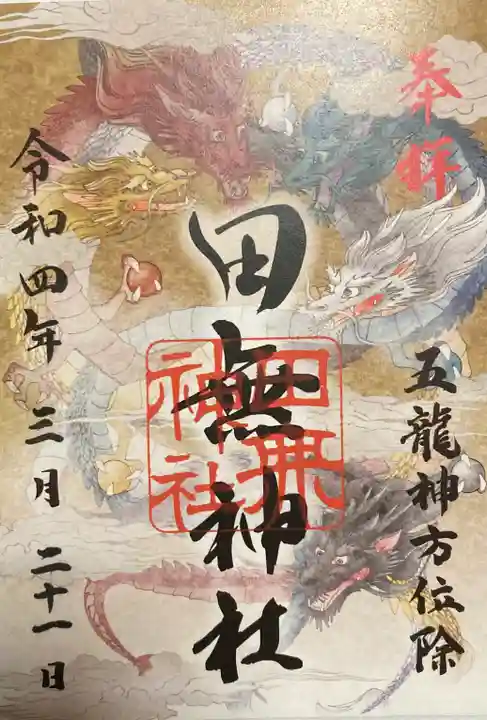 奉拝
五龍神方位除
田無神社
田無神社
令和四年 三月 二十一日